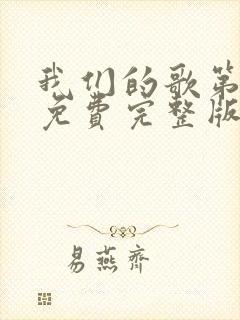 我们的歌第
免费完整版
易燕齐